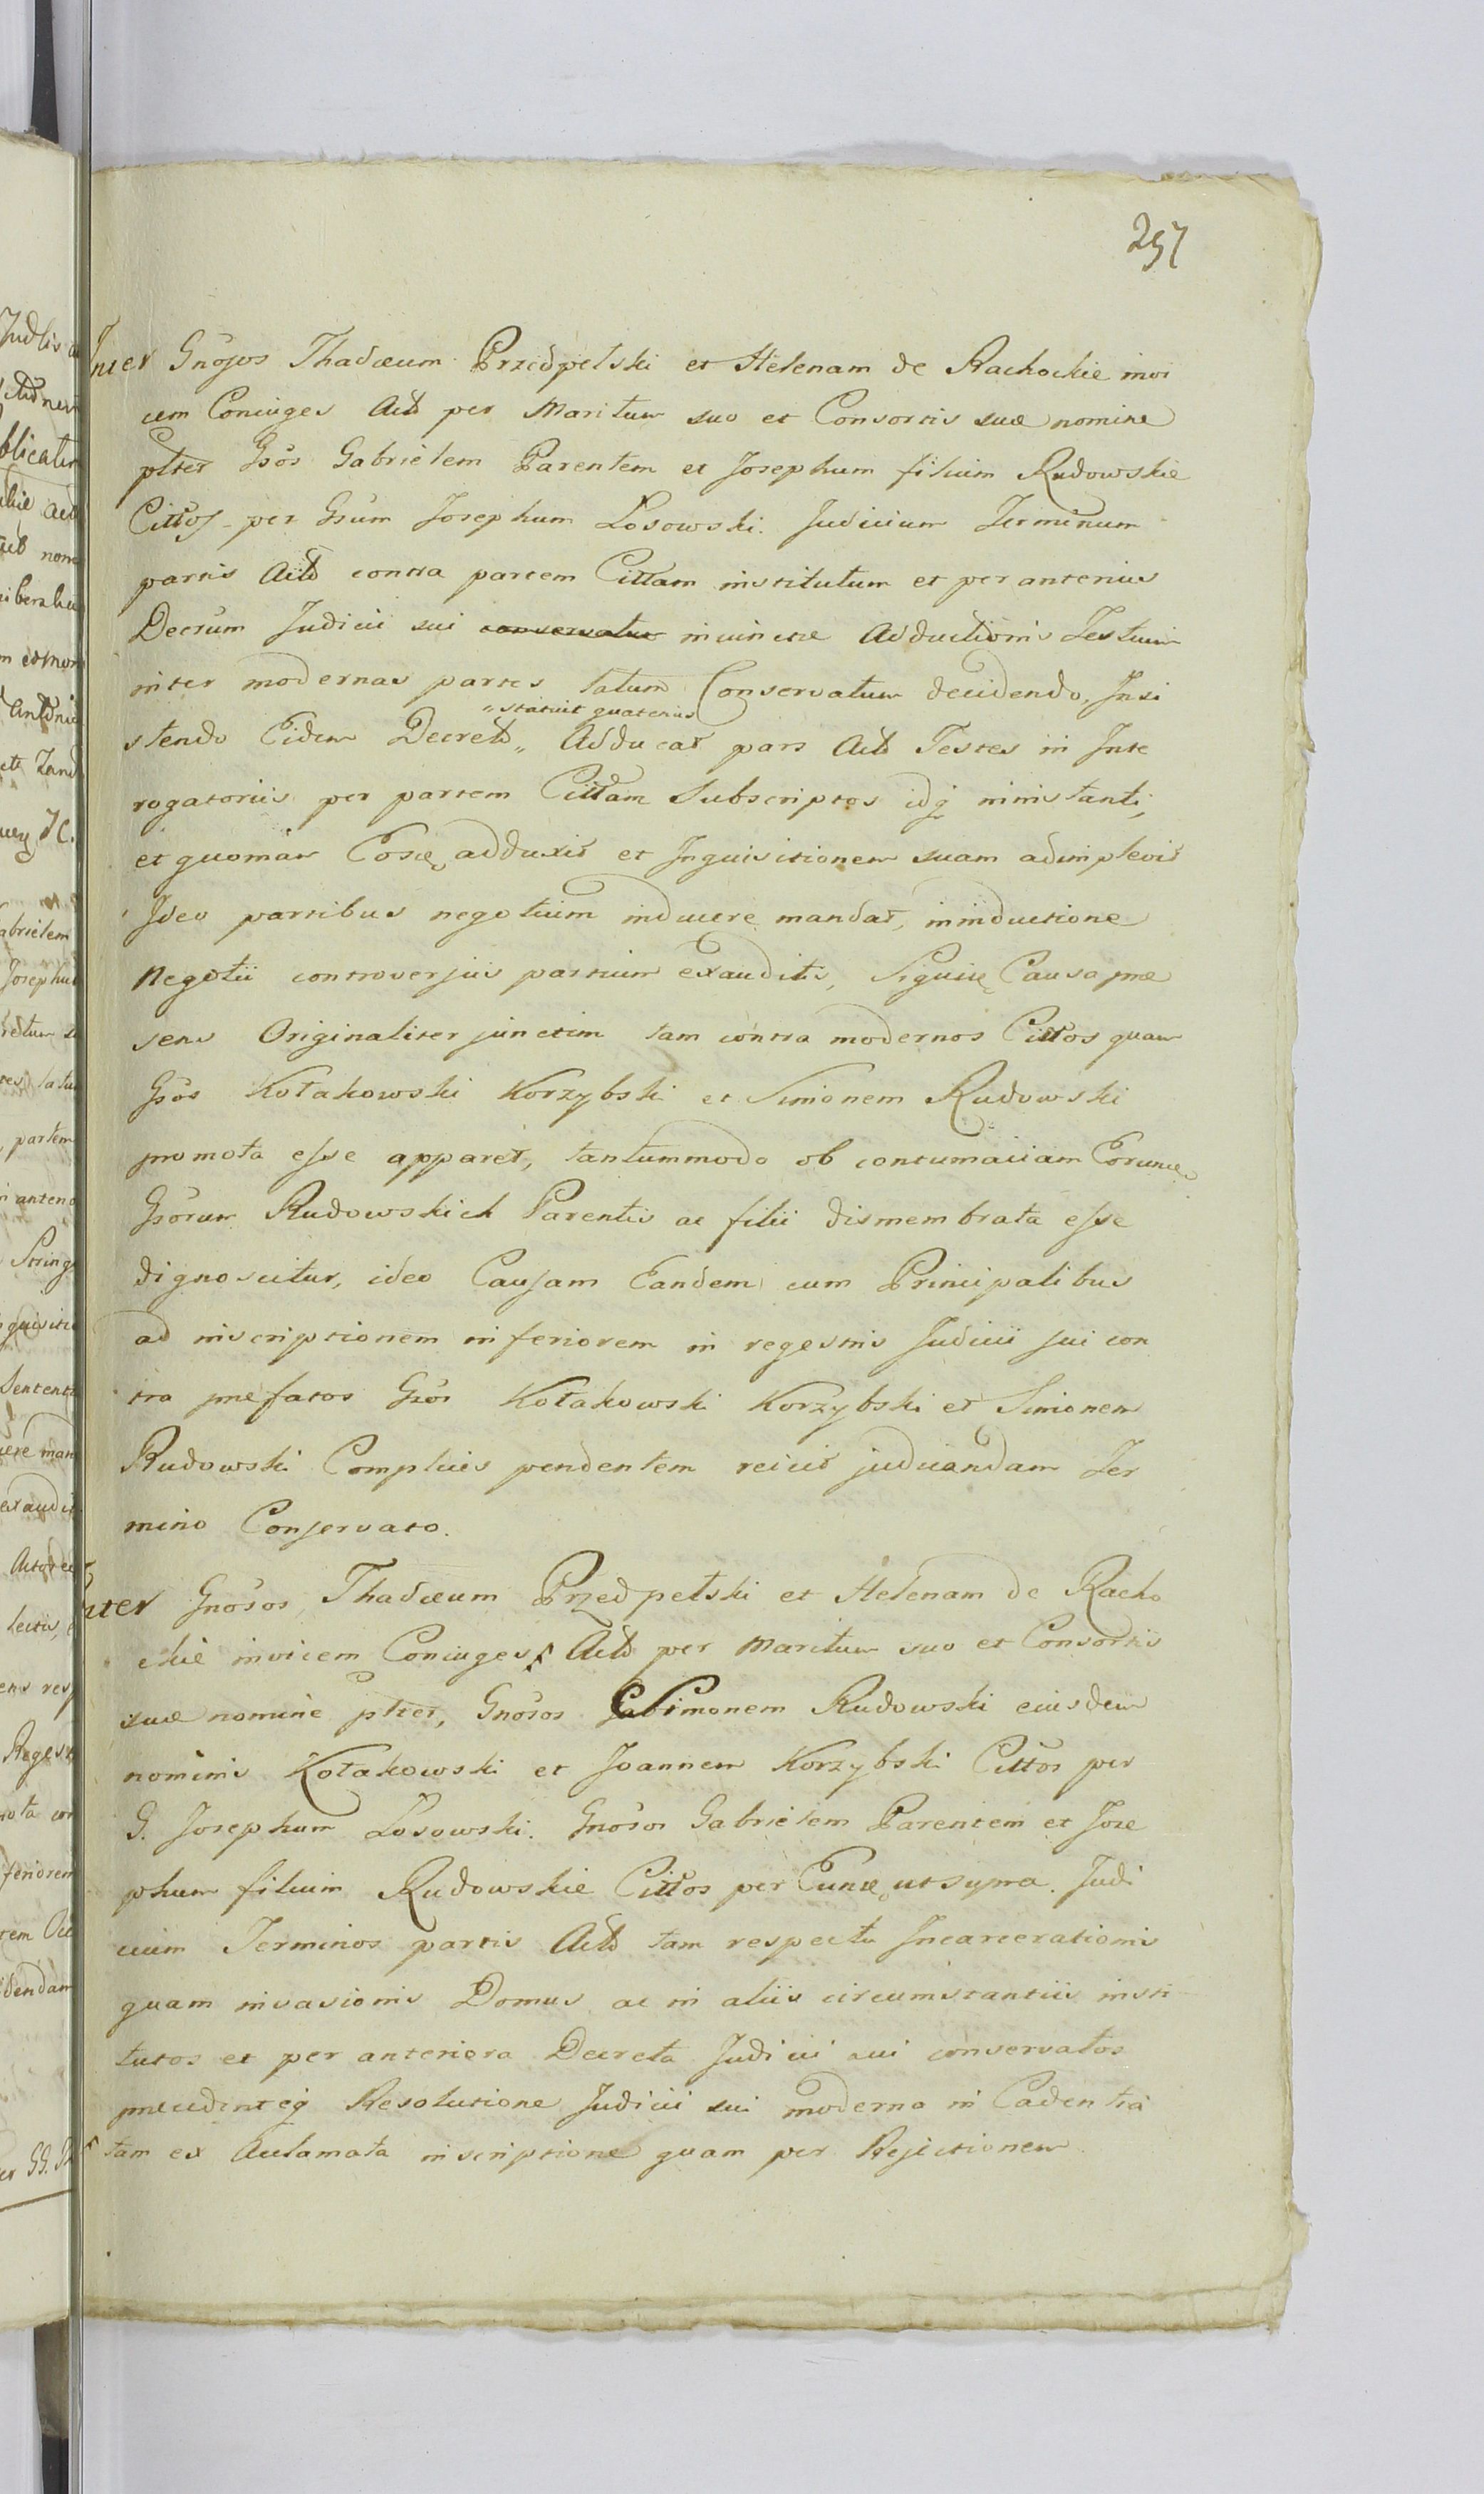 257
Inter Gnosos Thadæum Przedpelski et Helenam de Rachockie invi
cem Coniuges Actō per Maritum suo et Consortis suæ nomine
plter Gsos Gabrielem Parentem et Josephum filium Rudowskie
Cittos per Gsum Josephum Losowski. Judicium Terminum
partis Actō contra partem Cittam institutum et per anterius
Decrum Judicii sui conservatum in vim cræ Adductionis Testium
inter modernas partes latum Conservatum decidendo, Insi
stendo Eidem Decreto „ statuit quatenus „ Adducat pars Actō Testes in Inte
rogatoriis per partem Cittam Subscriptos idq in instanti,
et quoniam Eosce adduxit et Inquisitionem suam adimplevit
Ideo partibus negotium inducere mandat, in inductione
Negotii controversiis partium exauditis, Siquid Causa præ
sens Originaliter junctim tam contra modernos Cittos quam
Gsos Kołakowski Korzybski et Simonem Rudowski
promota esse apparet, tantummodo ob contumaciam Eorunce
Gsorum Rudowskich Parentis ac filii dismembrata esse
dignoscitur, ideo Causam Eandem cum Principalibus
ad inscriptionem inferiorem in regestris Judicii sui con
tra præfatos Gsos Kołakowski Korzybski et Simonem
Rudowski Complices pendentem reicit judicandam Ter
mino Conservato.
Inter Gnosos Thadæum Przedpełski et Helenam de Racho
ckie invicem Coniuges Actō per Maritum suo et Consortis
suæ nomine plter, Gnosos Simonem Rudowski eiusdem
nominis Kołakowski et Joannem Korzybski Cittos per
G. Josephum Losowski. Gnosos Gabrielem Parentem et Jose
phum filium Rudowskie Cittos per Eunce ut supra. Judi
cium Terminos partis Actō tam respectu Incarcerationis
quam invasionis Domus ac in aliis circumstantiis insti
tutos et per anteriora Decreta Judicii sui conservatos
præcedinteq Resolutione Judicii sui moderna in Cadentia
tam ex Acclamata inscriptione quam per Rejectionem